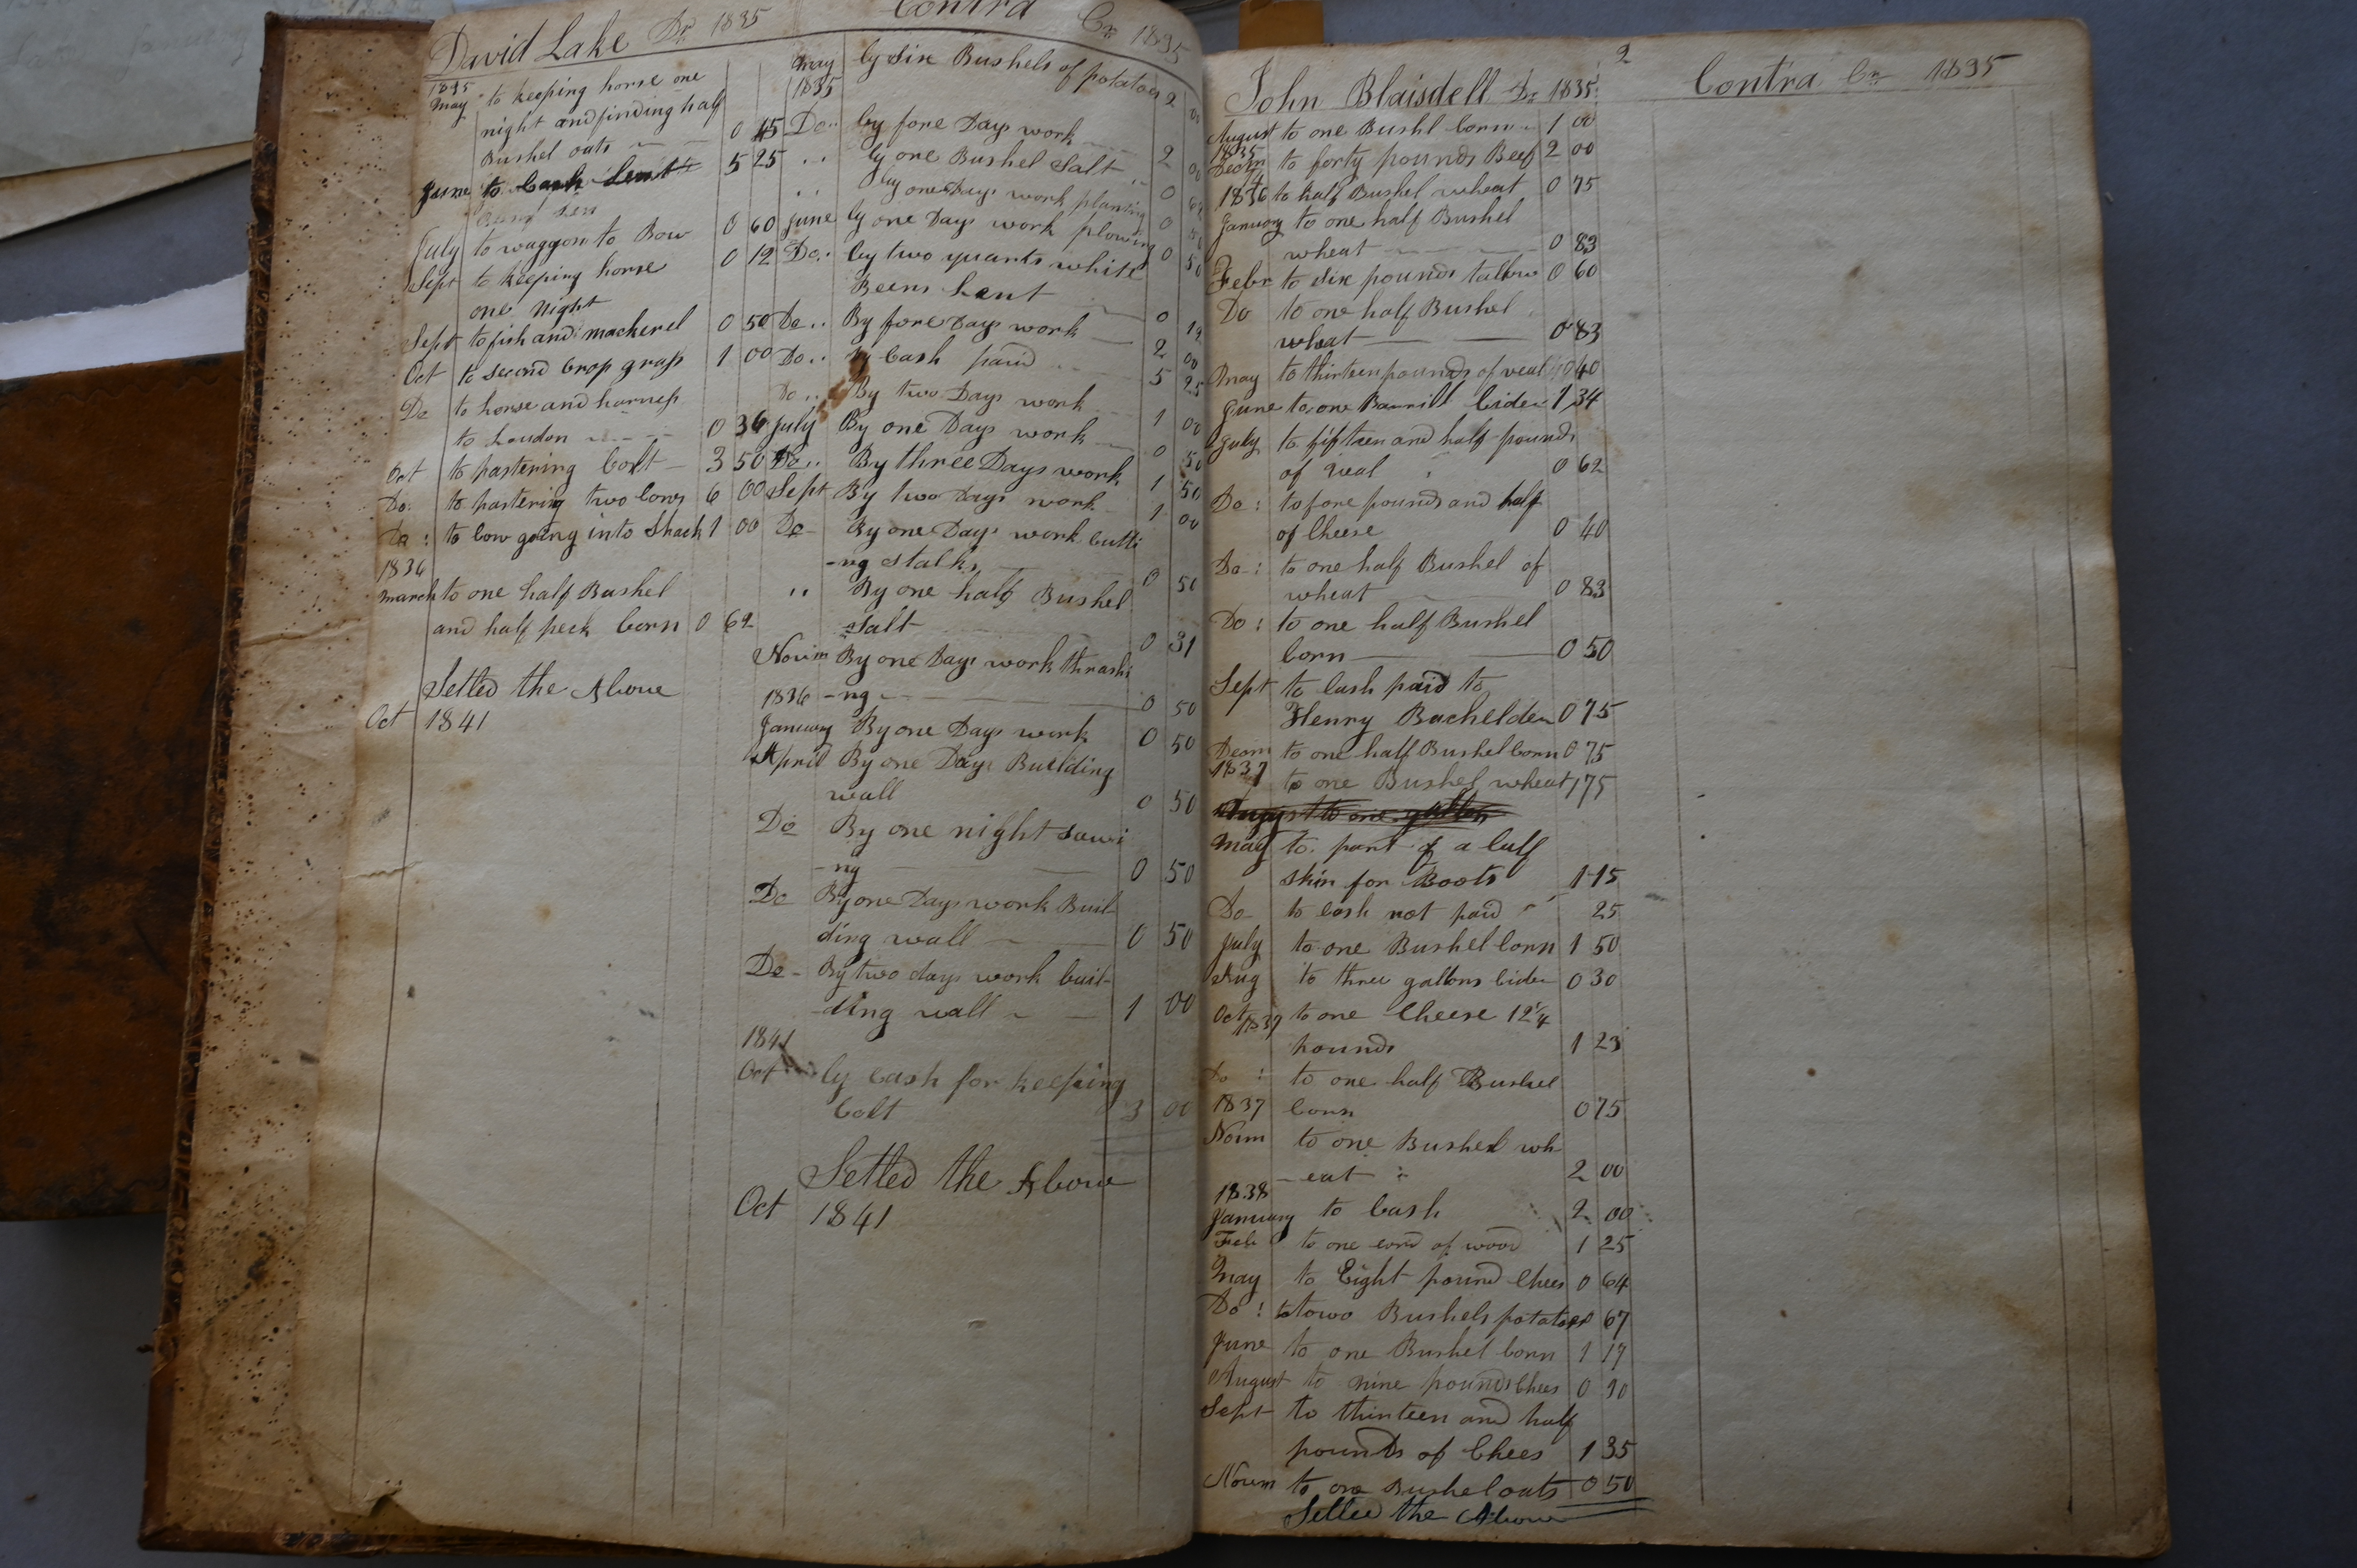 David Lake Dr 1835
1835
May to keeping horse one
night and finding half
Bushel oats 0 45
June to Cash Lent 5 25
July to waggon to Bow 0 60
Sept to keeping horse 0 12
one night
Sept to fish and mackerel 0 50
Oct to second Crop grass 1 00
Do to horse and harness
to Loudon 0 36
Oct to pastering Colt 3 50
Do: to pastering two Cows 6 00
Do: to Cow going into Shack 1 00
1836
March to one half Bushel
and half peck Corn 0 62
Setled the Above
Oct 1841
Contra Cr 1835
May by Six Bushels of potatoes 2 00
1835
Do.. by fore Days work 2 00
.. by one Bushel Salt 0 62
.. by one Days work planting 0 50
June by one Days work plowing 0 50
Do: by two quarts white
Beens Lent 0 12
Do.. By fore Days work 2 00
Do.. By Cash paid 5 25
Do.. By two Days work 1 00
July By one Days work 0 50
Do.. By three Days work 1 50
Sept By two Days work 1 00
Do By one Days work Cutti
-ng stalks 0 50
.. By one half Bushel
Salt 0 31
Novim By one Days work thrashi
1836 -ng 0 50
January By one Days work 0 50
April By one Days Building
wall 0 50
Do By one night sawi
-ng 0 50
Do By one Days work Buil-
ding wall 0 50
Do By two days work buil-
-ding wall 1 00
1841
Oct by Cash for keeping
Colt 3 00
Setled the Above
Oct 1841
2
John Blaisdell Dr 1835
August to one Bushl Corn 1 00
1835
Decm to forty pounds Beef 2 00
1836 to half Bushel wheat 0 75
January to one half Bushel
wheat 0 83
Febr to six pounds tallow 0 60
Do to one half Bushel
wheat 0 83
May to thirteen pounds of veal 0 40
June to one Barrill Cider 1 34
July to fifteen and half pounds
of veal 0 62
Do: to fore pounds and half
of Cheese 0 40
Do: to one half Bushel of
wheat 0 83
Do: to one half Bushel
Corn 0 50
Sept to Cash paid to
Henry Bachelder 0 75
Decm to one half Bushel Corn 0 75
1837 to one Bushel wheat 1 75
August to one gallon
May to part of a Calf
skin for Boots 1 15
Do to Cash not paid 25
July to one Bushel Corn 1 50
Aug to three gallons Cider 0 30
Oct 1837 to one Cheese 12 1/4
pounds 1 23
Do: to one half Bushel
1837 Corn 0 75
Novm to one Bushel wh
-eat 2 00
1838
January to Cash 2 00
Feb to one cord of wood 1 25
May to Eight pound Chees 0 64
Do: to towo Bushels potatoes 0 67
June to one Bushel Corn 1 17
August to nine pounds Chees 0 90
Sept to thirteen and half
pounds of Chees 1 35
Novem to one Bushel oats 0 50
Setled the Above
Contra Cr 1835